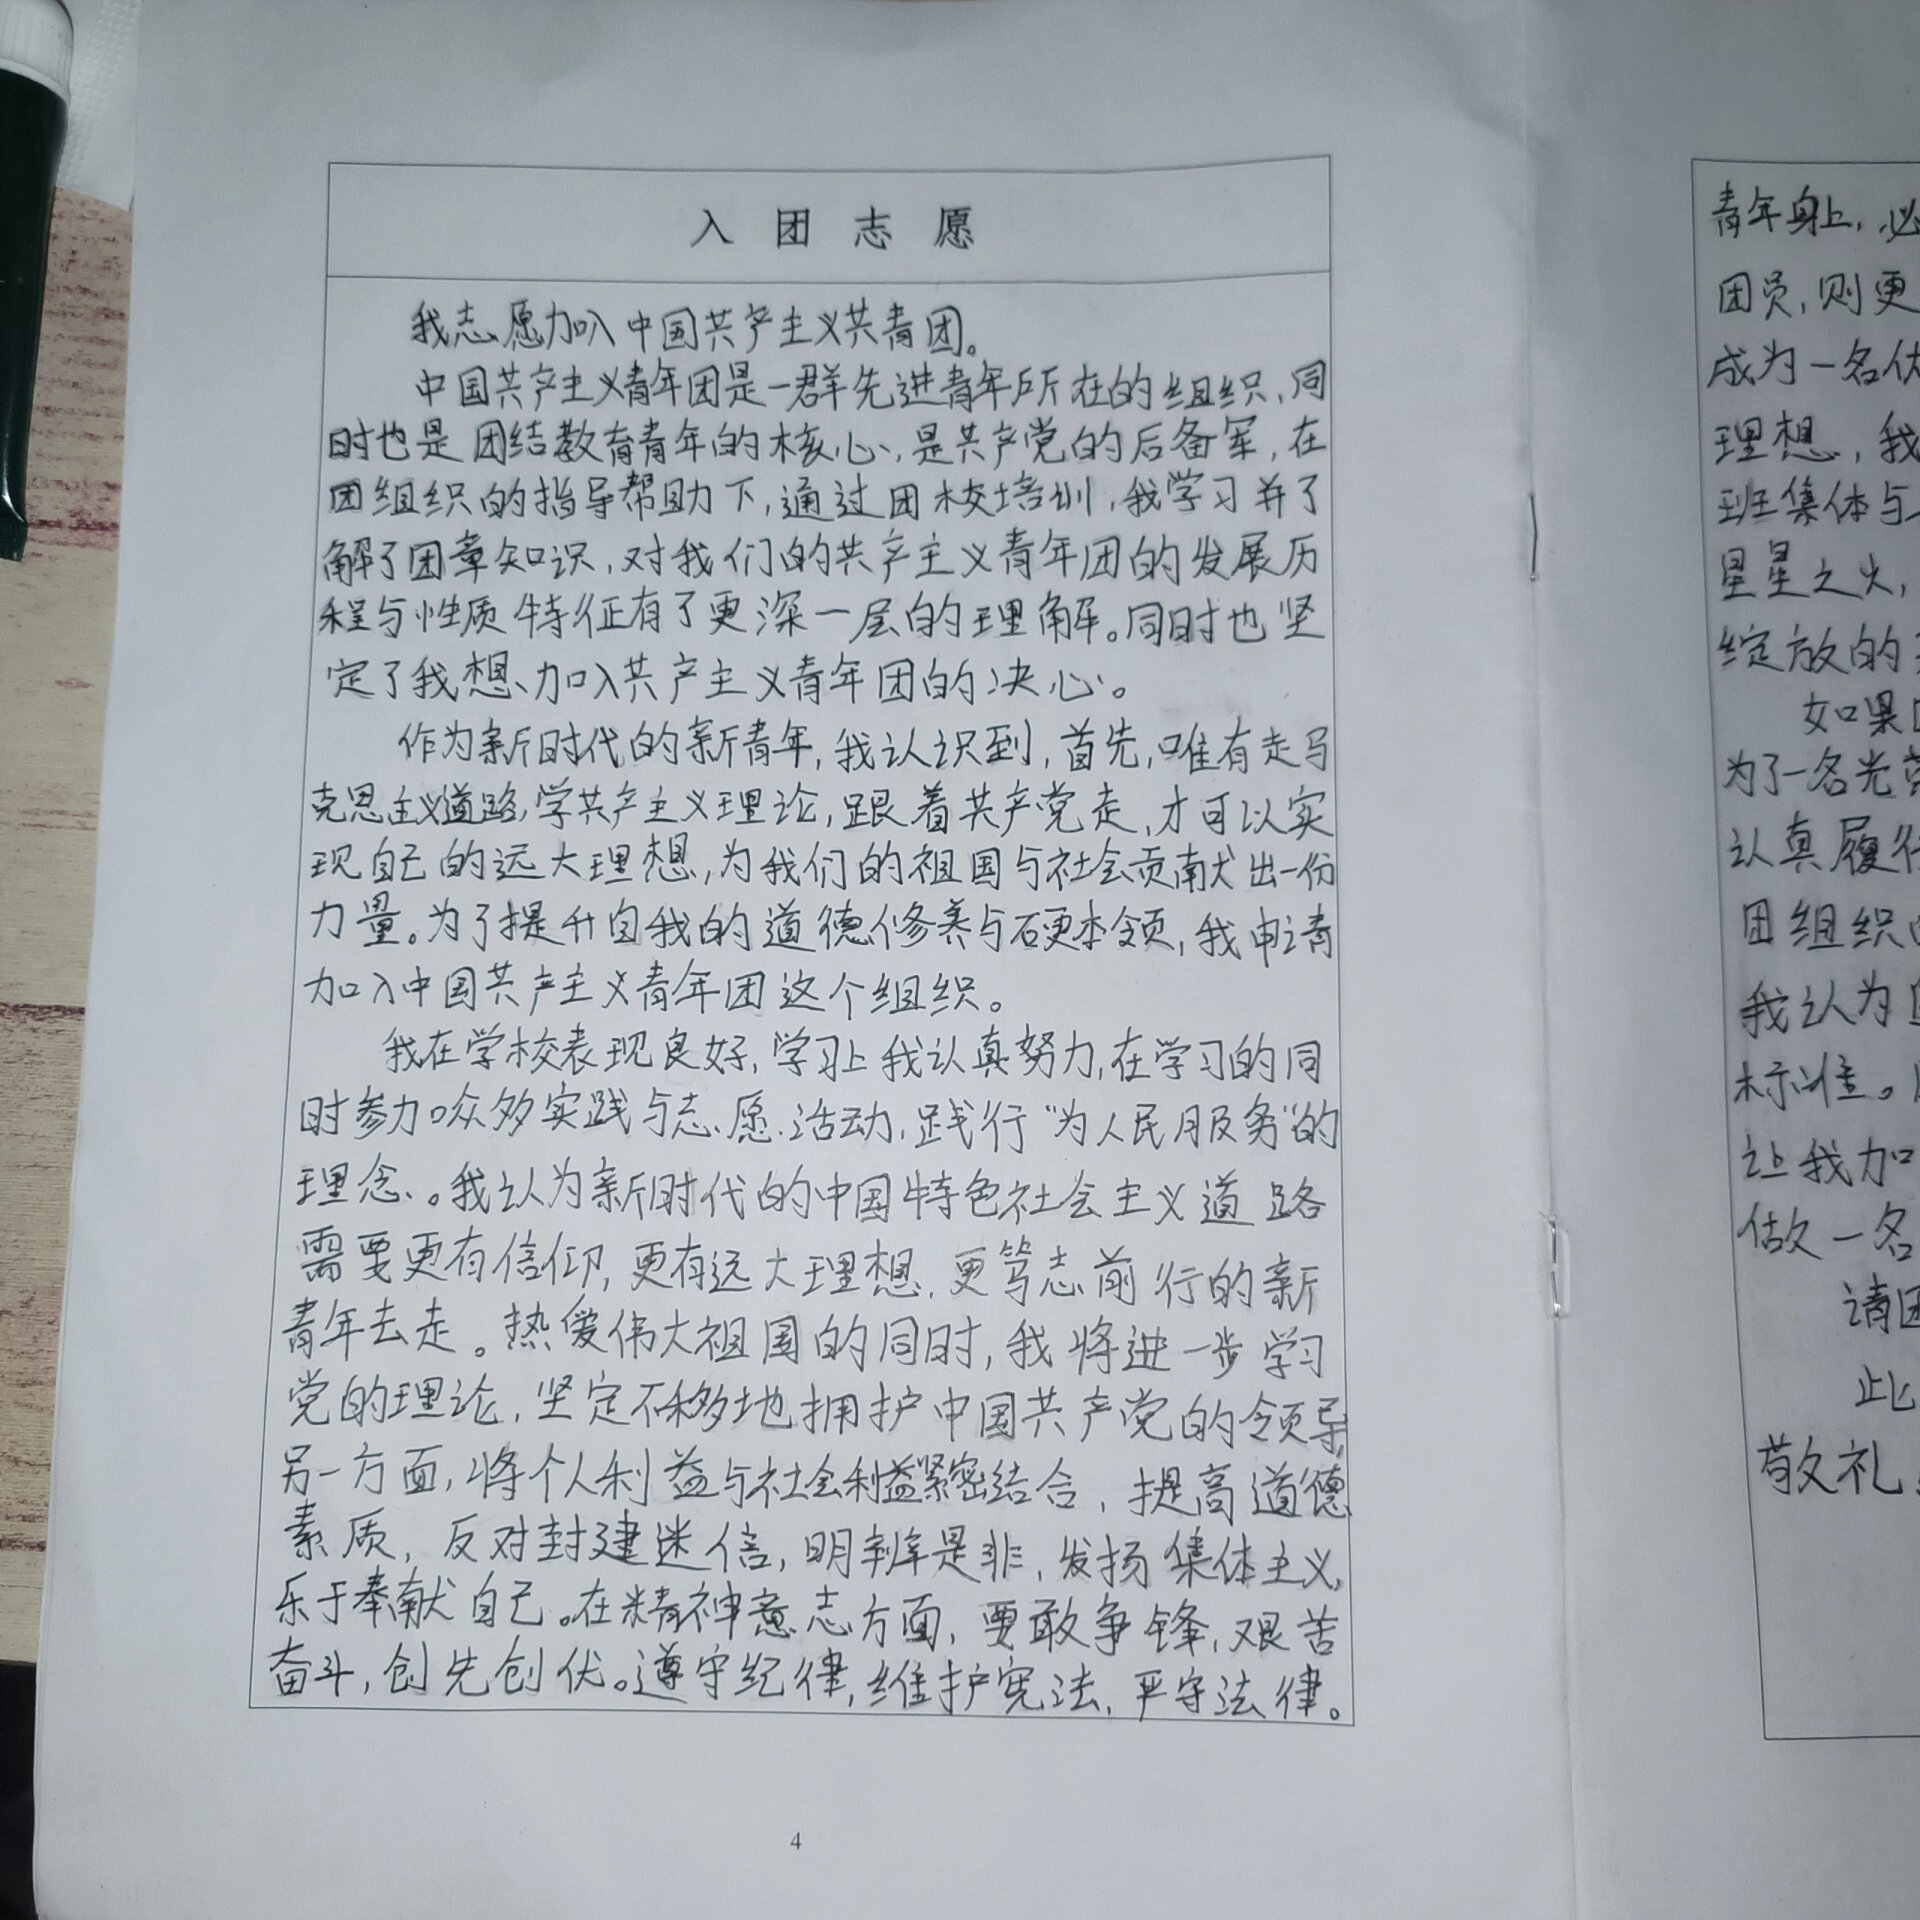 入团志愿
我志愿加入中国共产主义共青团。
中国共产主义青年团是一群先进青年所在的组织,同
时也是团结教育青年的核心,是共产党的后备军,在
团组织的指导帮助下,通过团校培训,我学习并了
解了团章知识,对我们的共产主义青年团的发展历
程与性质特征有了更深一层的理解。同时也坚
定了我想加入共产主义青年团的决心。
作为新时代的新青年,我认识到,首先,唯有走马
克思主义道路,学共产主义理论,跟着共产党走,才可以实
现自己的远大理想,为我们的祖国与社会贡献出一份
力量。为了提升自我的道德修养与硬本领,我申请
加入中国共产主义青年团这个组织。
我在学校表现良好,学习上我认真努力,在学习的同
时参加众多实践与志愿活动,践行“为人民服务”的
理念。我认为新时代的中国特色社会主义道路
需要更有信仰,更有远大理想,更笃志前行的新
青年去走。热爱伟大祖国的同时,我将进一步学习
党的理论,坚定不移地拥护中国共产党的领导,
另一方面,将个人利益与社会利益紧密结合,提高道德
素质,反对封建迷信,明辨是非,发扬集体主义,
乐于奉献自己。在精神意志方面,要敢争锋,艰苦
奋斗,创先创优。遵守纪律,维护宪法,严守法律。
4
青年身上,必
团员,则更
成为一名优
理想,我
班集体与
星星之火,
绽放的
如果
为了一名光荣
认真履行
团组织的
我认为
标准。
让我加
做一名
请团
此
敬礼